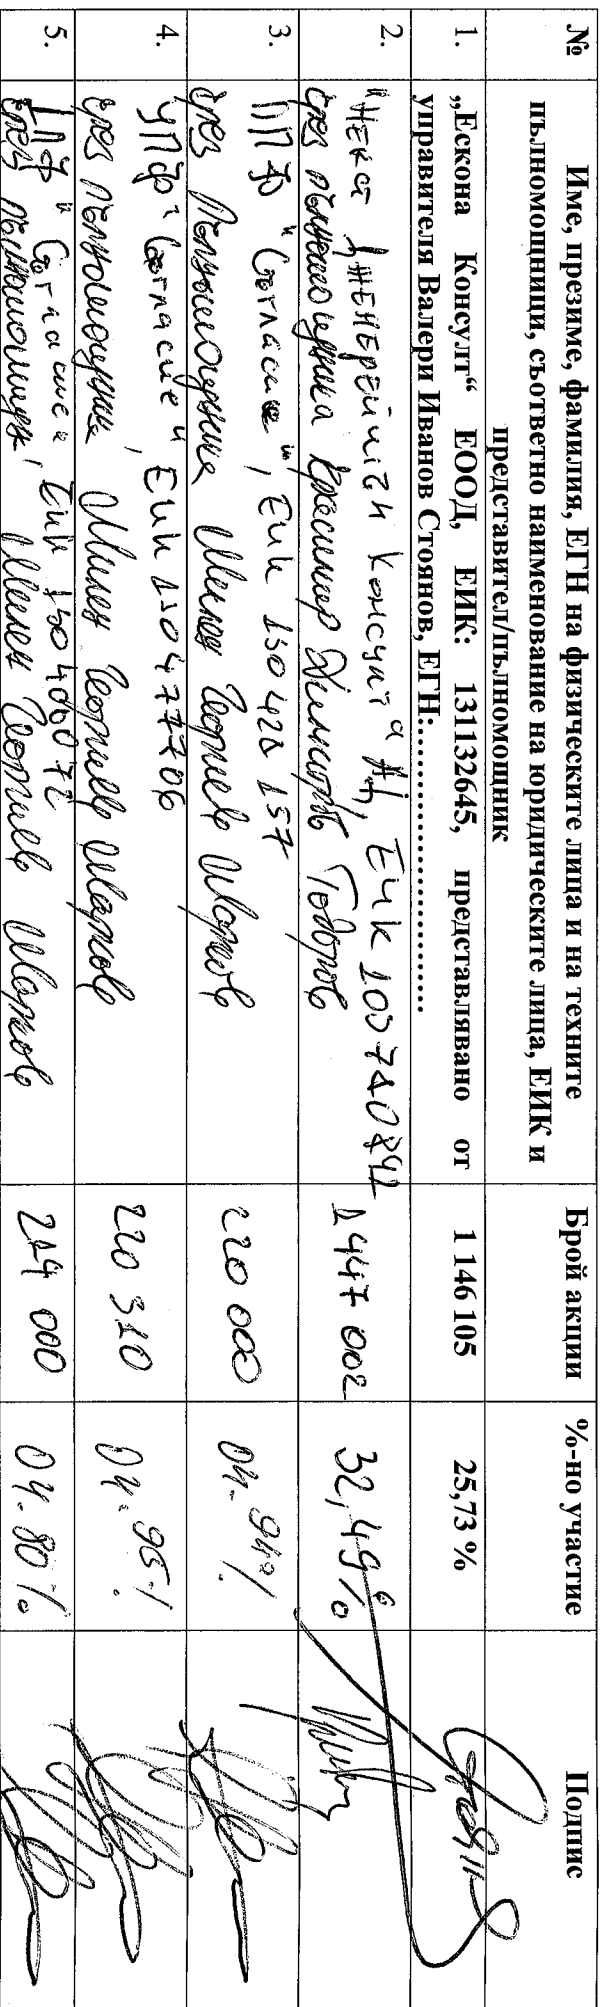 №
Име, презиме, фамилия, ЕГН на физическите лица и на техните
пълномощници, съответно наименование на юридическите лица, ЕИК и
представител/пълномощник
Брой акции
%-но участие
Подпис
1.
„Ескона Консулт“ ЕООД, ЕИК: 131132645, представлявано от
управителя Валери Иванов Стоянов, ЕГН:........................
1 146 105
25,73 %
2.
"Некст Дженерейшън Консулт" АД, ЕИК
чрез пълномощника Красимир Димитров Тодоров
1 447 002
32,49%
3.
ППФ "Съгласие", ЕИК 130428157
чрез пълномощника Милен Георгиев Марков
220 000
04.94%
4.
УПФ "Съгласие", ЕИК 130477706
чрез пълномощника, Милен Георгиев Марков
220 310
04.95%
5.
"Съгласие" ЕИК
чрез пълномощника, Милен Георгиев Марков
214 000
04.80%